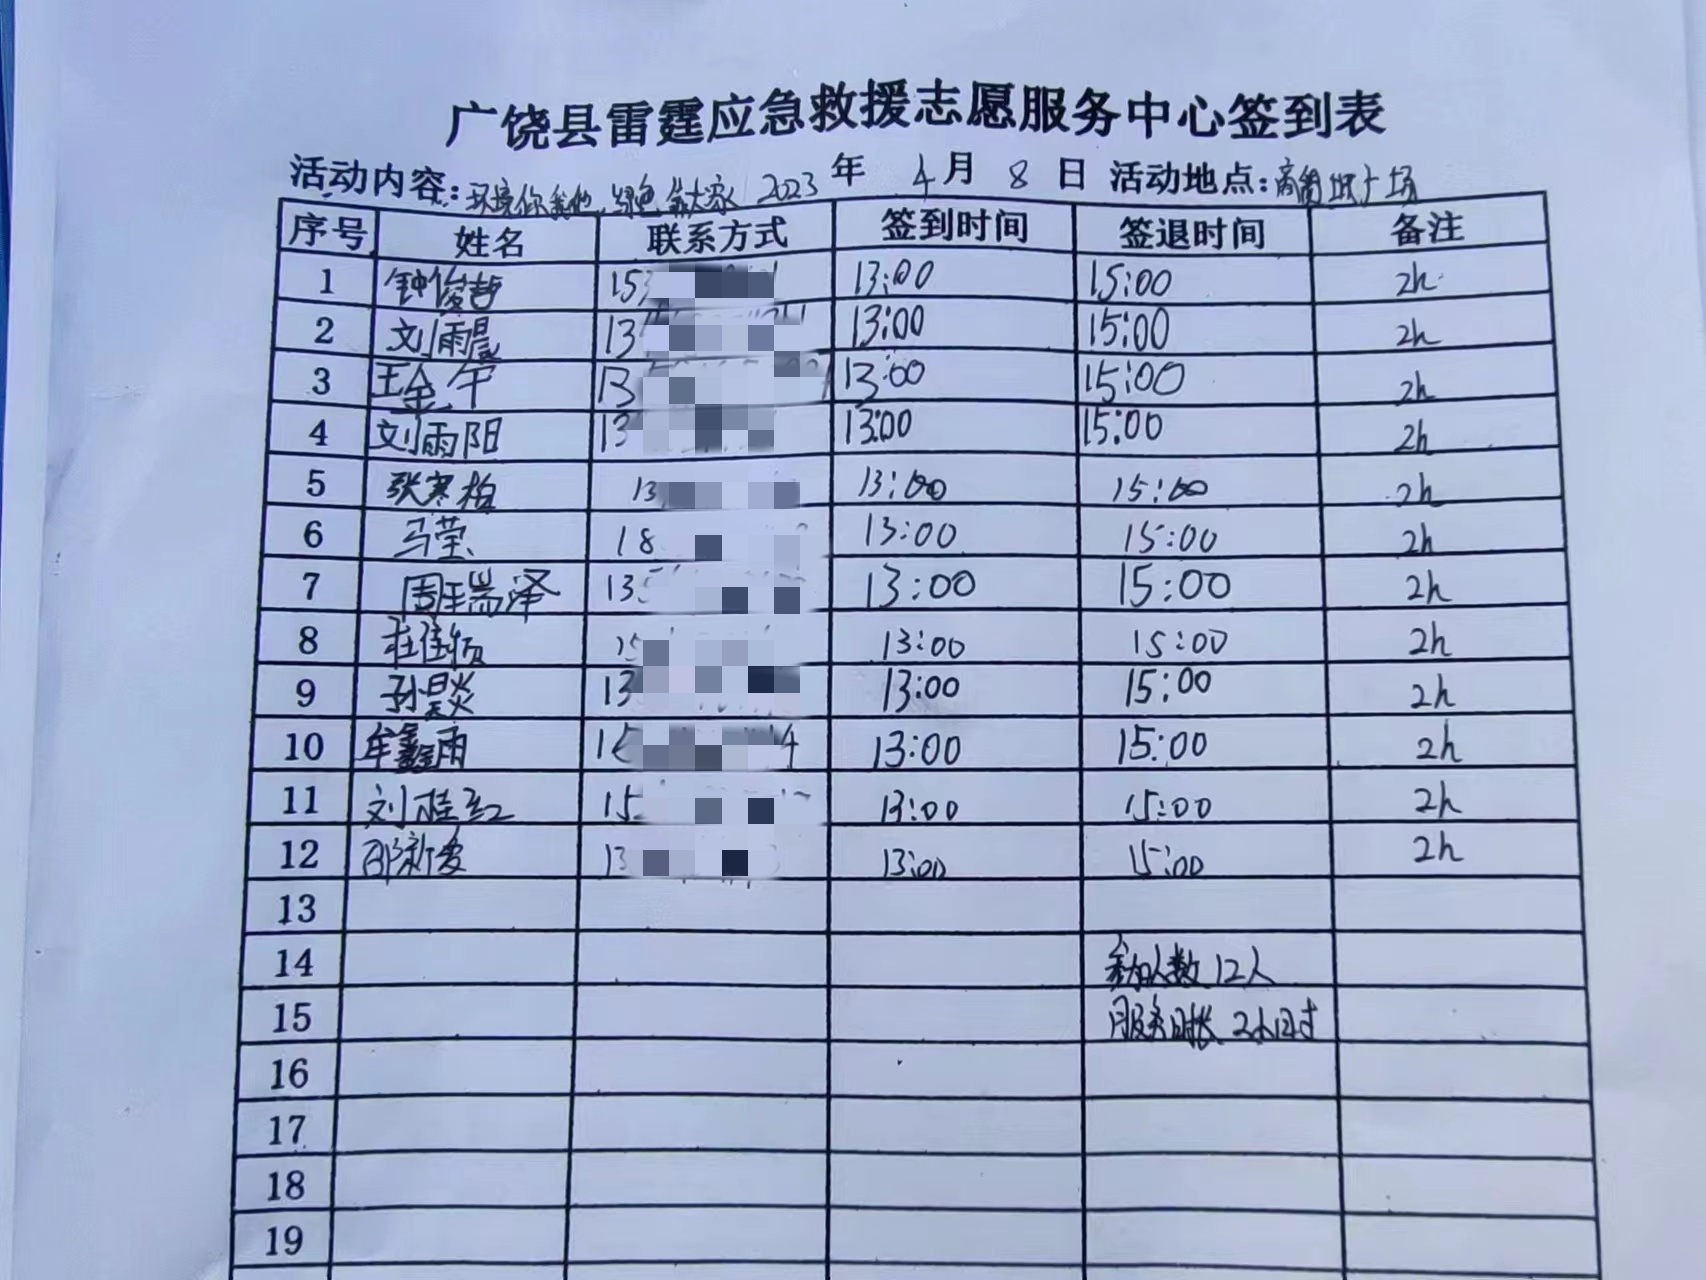 广饶县雷霆应急救援志愿服务中心签到表
活动内容：环境你我他，绿色大家 2023年4月8日 活动地点：商圈广场
序号 姓名 联系方式 签到时间 签退时间 备注
1 钟俊哲 15 13:00 15:00 2h
2 刘雨晨 13 13:00 15:00 2h
3 王金午 13 13:00 15:00 2h
4 刘雨阳 13 13:00 15:00 2h
5 张寒柏 13 13:00 15:00 2h
6 马莹 18 13:00 15:00 2h
7 周瑞泽 13 13:00 15:00 2h
8 13:00 15:00 2h
9 孙昊炎 13 13:00 15:00 2h
10 牟鑫雨 4 13:00 15:00 2h
11 刘桂红 15 13:00 15:00 2h
12 邵新爱 13 13:00 15:00 2h
13
14 参加人数 12人
15 服务时长 2小时
16
17
18
19